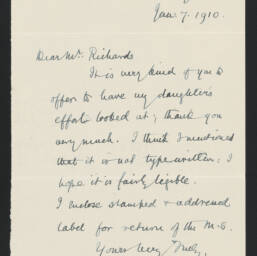 Jan. 7. 1910.
Dear Mr. Richards
It is very kind of you to
offer to have my daughter's
effort looked at; thank you
very much. I think I mentioned
that it is not type written; I
hope it is fairly legible.
I enclose stamped & addressed
label for return of the M.S.
Yours very truly,